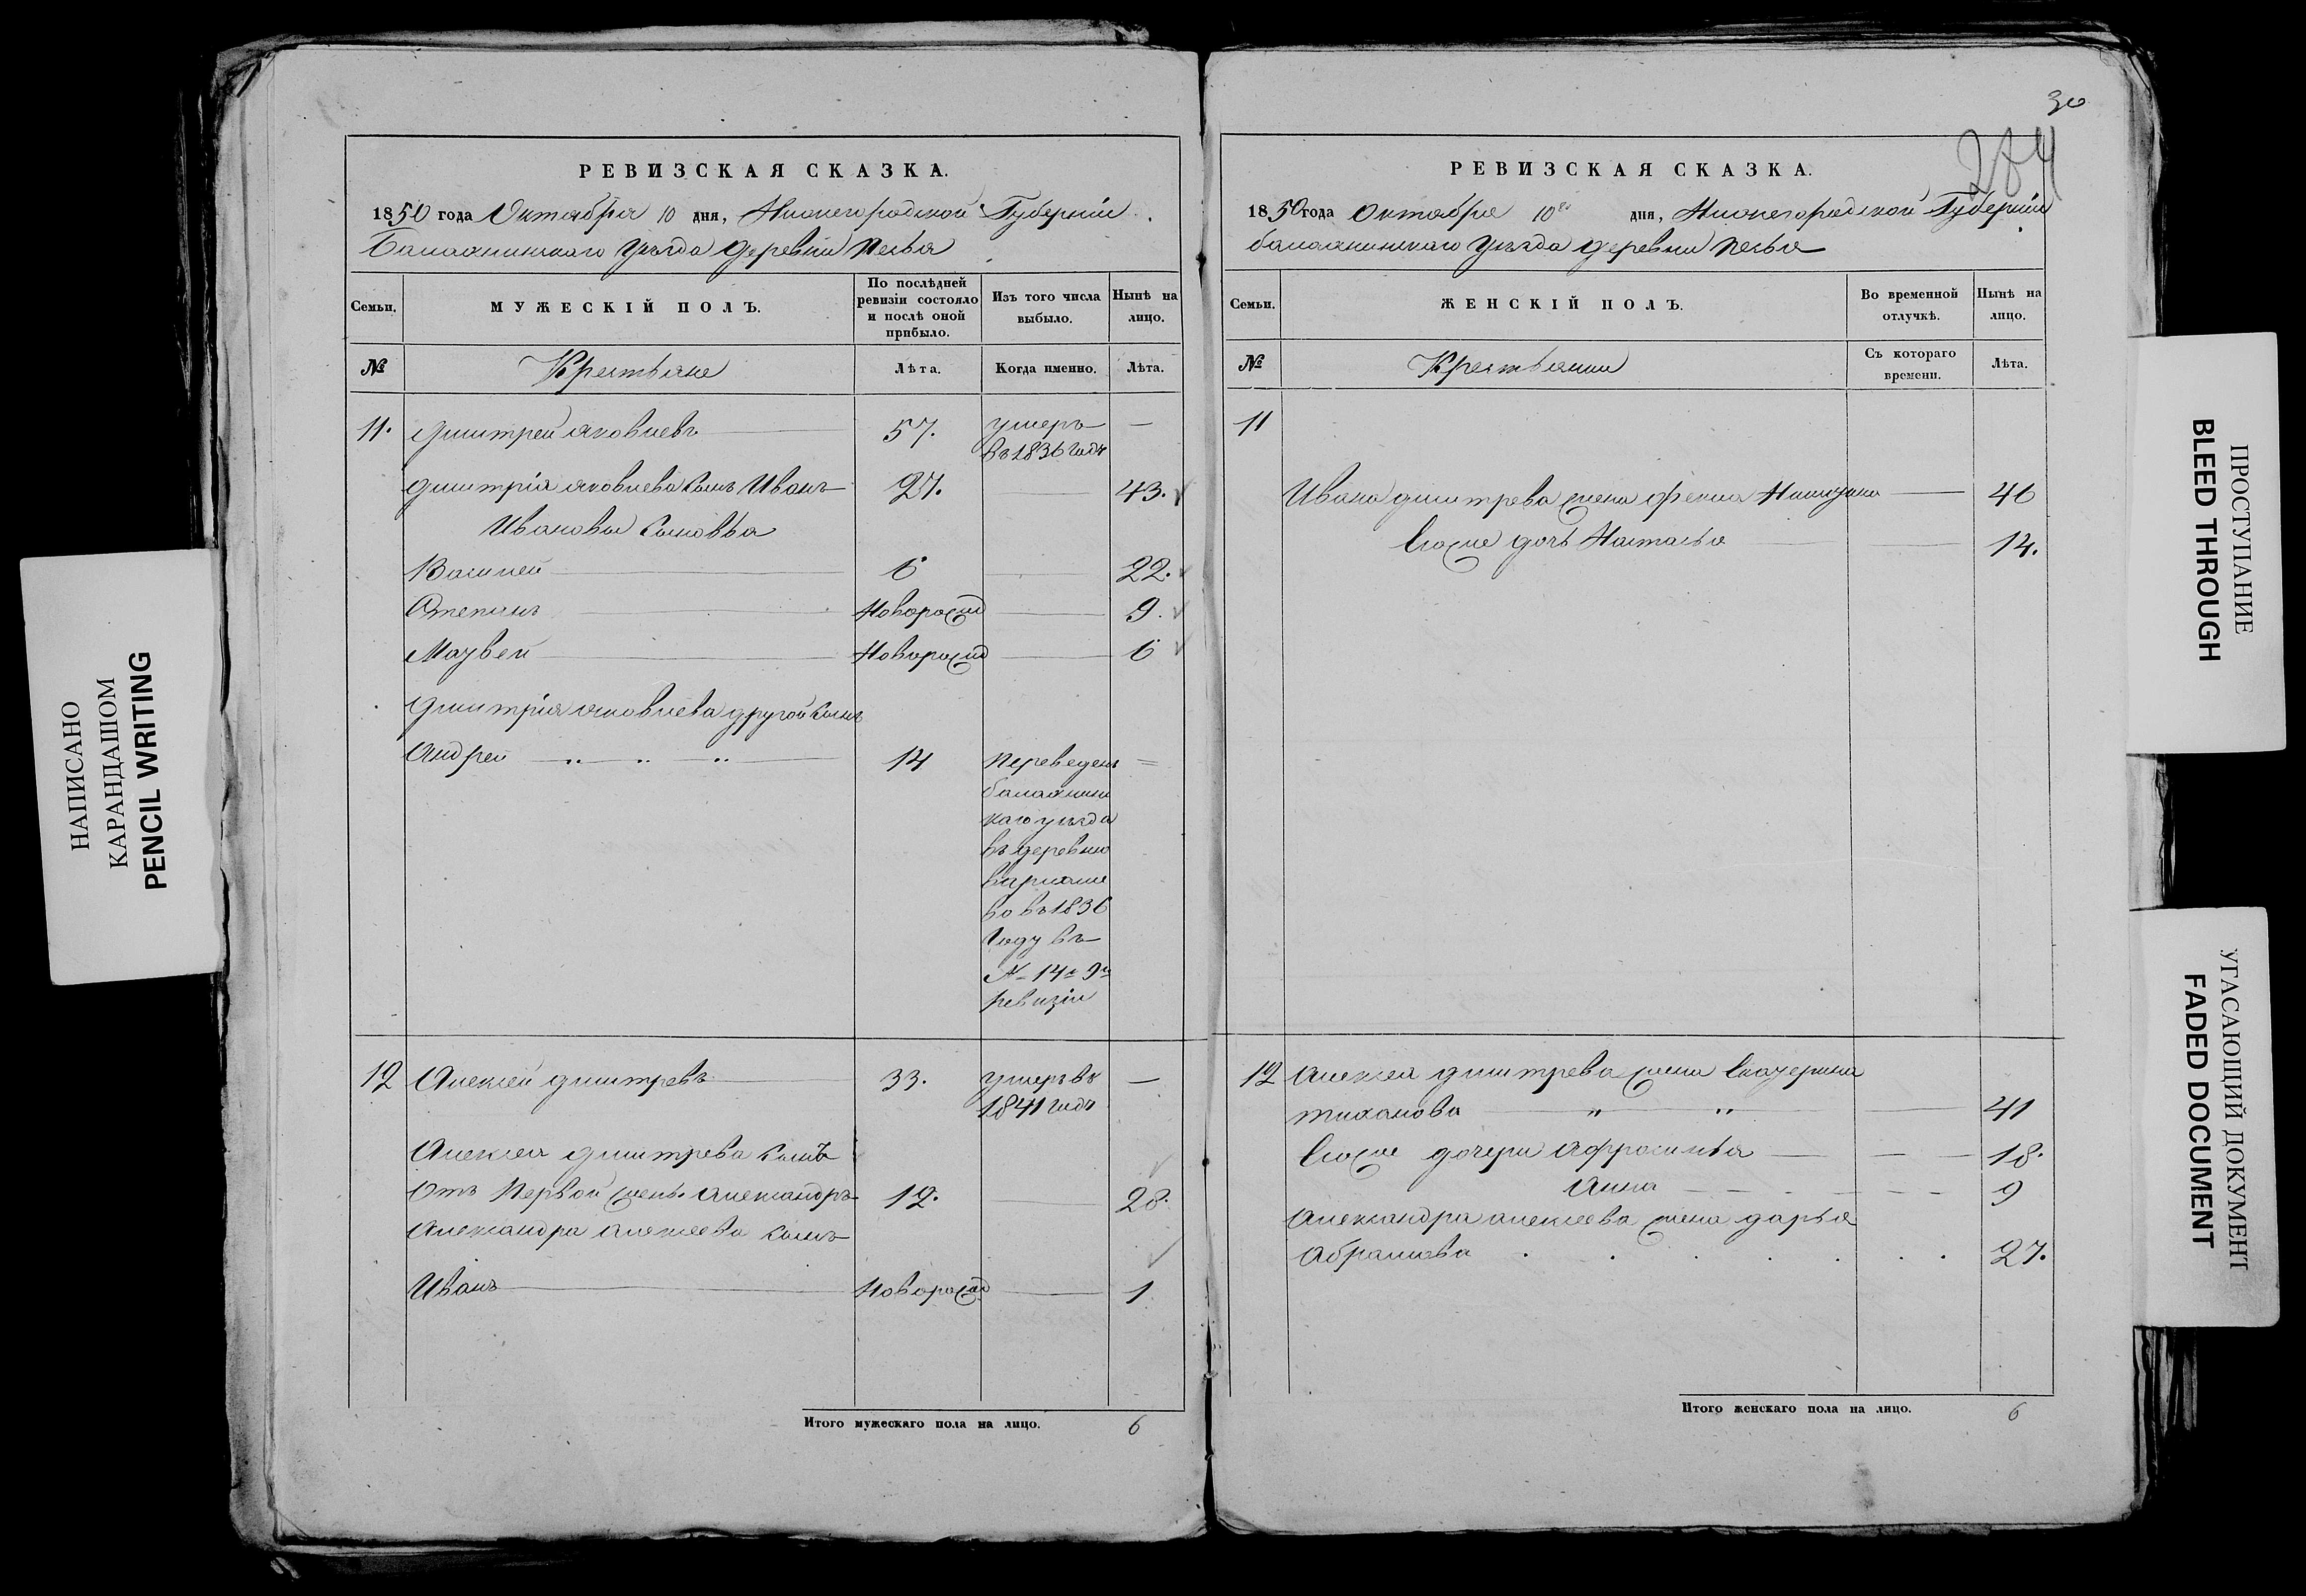 НАПИСАНО
КАРАНДАШОМ
PENCIL WRITING
РЕВИЗСКАЯ СКАЗКА.
1850 года Октября 10 дня, Нижегородской Губернии
Балахнинскаго уѣзда деревни
Семьи.
МУЖЕСКІЙ ПОЛЪ.
По послѣдней
ревизіи состояло
и послѣ оной
прибыло.
Изъ того числа
выбыло.
Нынѣ на
лицо.
№
Крестьяне
Лѣта.
Когда именно.
Лѣта.
11. Дмитрей Яковлевъ 57. умеръ —
въ 1836 годѣ
Дмитрія Яковлева сынъ Иванъ 27. 43.
Ивановы сыновья
Василей 6 22.
Степанъ Новорожд 9.
Матвей Новорожд 6
Дмитрія Яковлева другой сынъ
Андрей 14 переведенъ =
балахнин
каго уѣзда
въ деревню
во въ 1836
году въ
№ 14й 9й
ревизіи
12 Алексей Дмитревъ 33. умеръ въ —
1841 годѣ
Алексея Дмитрева сынъ
Отъ Первой жены Александръ 12. 28.
Александра Алексеева сынъ
Иванъ Новорожд 1
Итого мужескаго пола на лицо. 6
30
284
РЕВИЗСКАЯ СКАЗКА.
1850 года Октября 10го дня, Нижегородской Губерніи
балахнинскаго уѣзда деревни
Семьи.
ЖЕНСКІЙ ПОЛЪ.
Во временной
отлучкѣ.
Нынѣ на
лицо.
№
Крестьянки
Съ котораго
времени.
Лѣта.
11
Ивана Дмитрева жена Фекла 46
Его же дочь Настасья 14.
12 Алексея Дмитрева жена Екатерина
Тиханова 41
Его же дочери Афросинья 18.
Анна 9
Александра Алексеева жена Дарья
Абрамова 27.
Итого женскаго пола на лицо. 6
ПРОСТУПАНИЕ
BLEED THROUGH
УГАСАЮЩИЙ ДОКУМЕНТ
FADED DOCUMENT